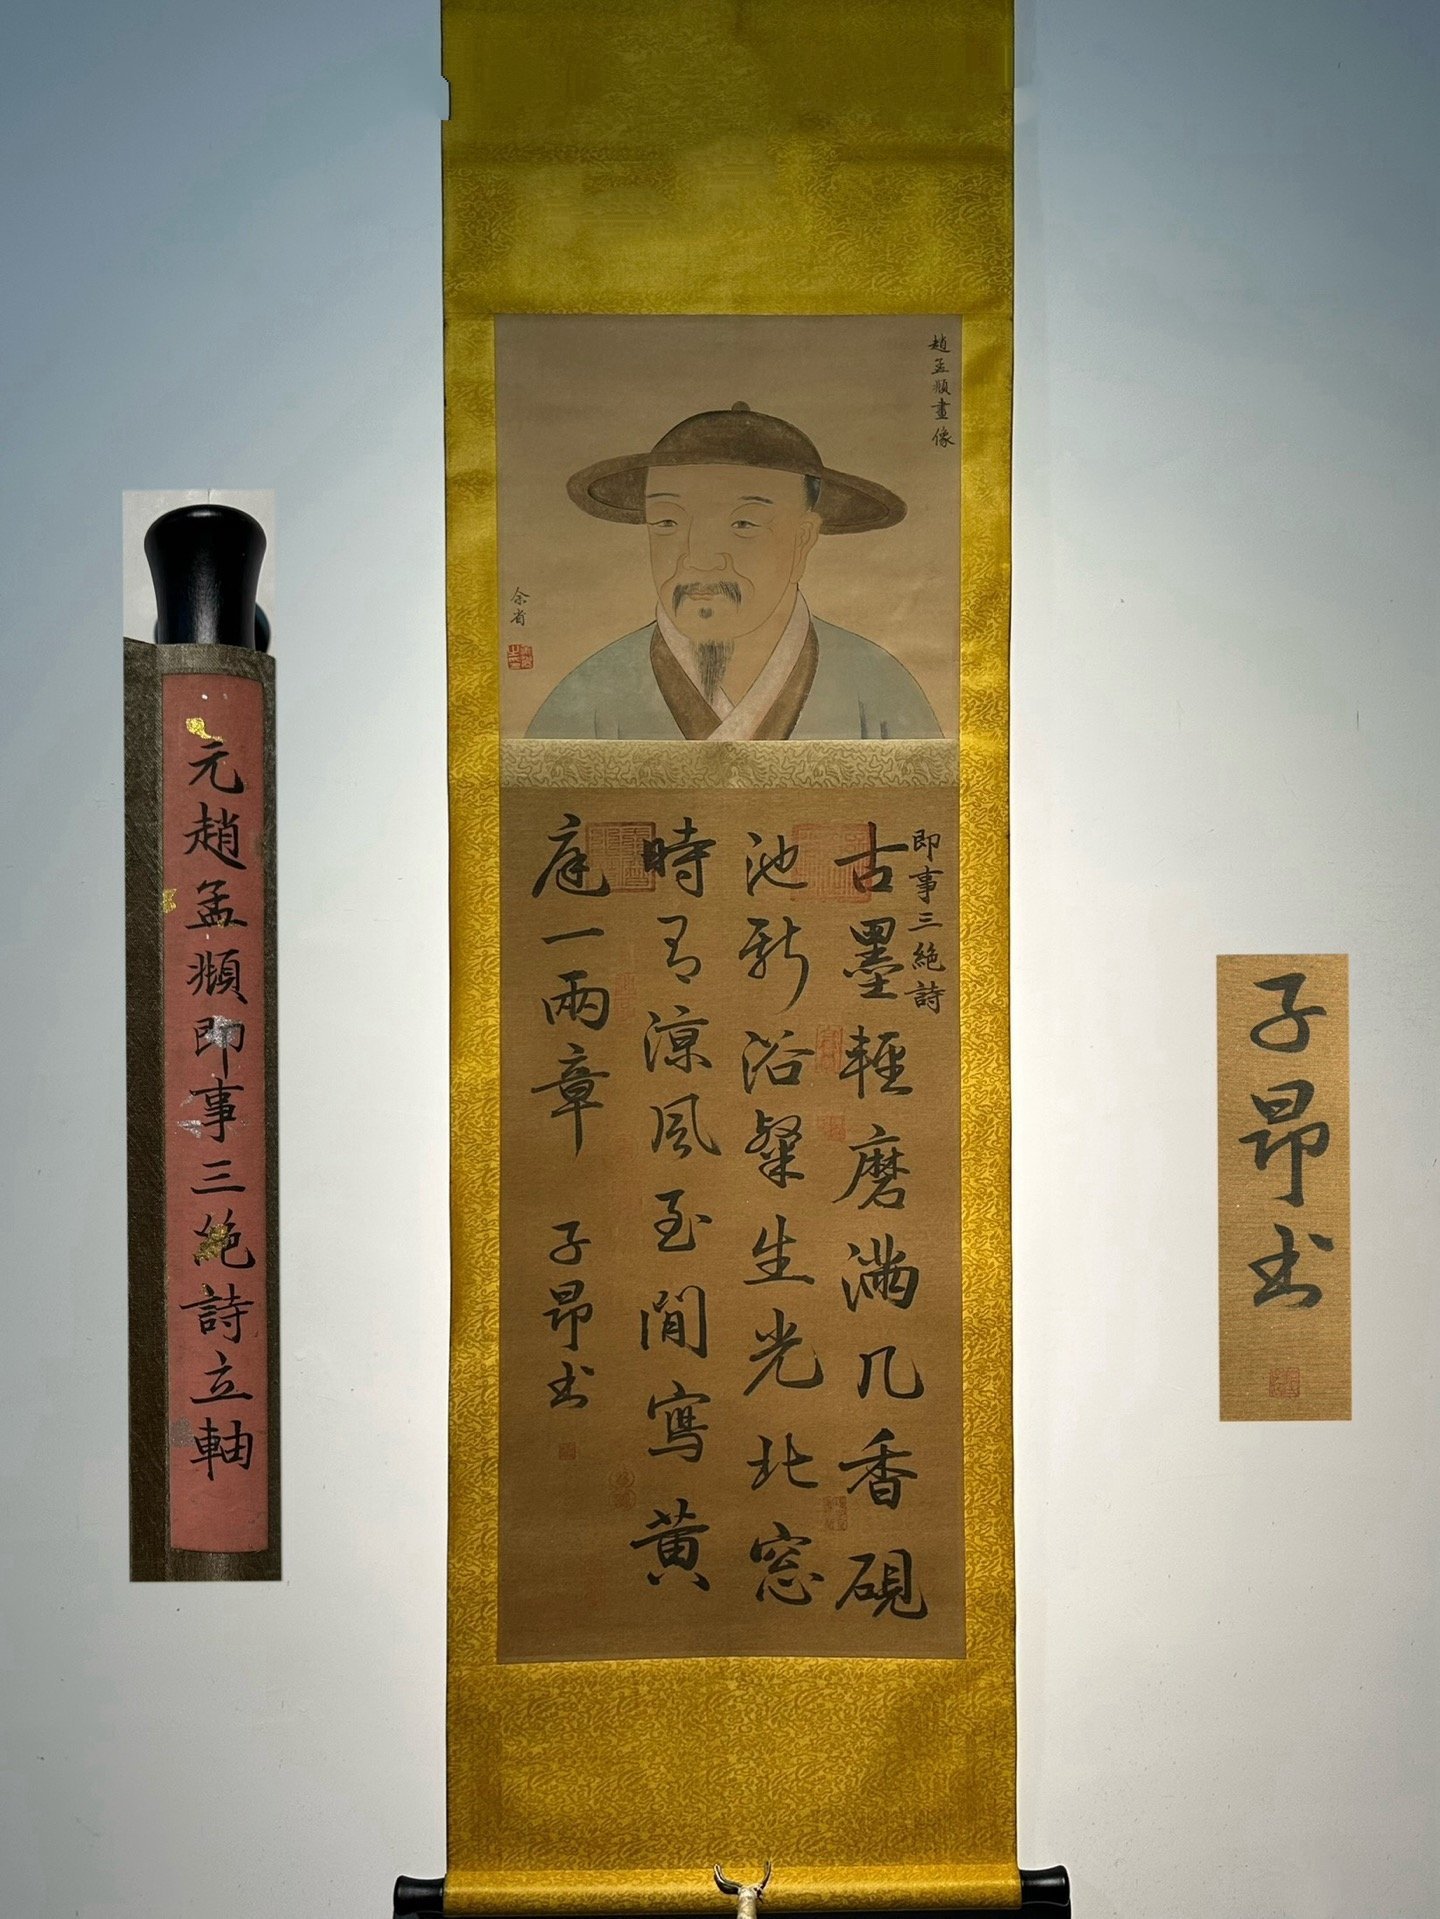 趙孟頫畫像
余省
即事三絶詩
古墨輕磨滿几香硯
池新浴粲生光北窓
時有涼風至閒寫黄
庭一兩章
子昂书
元趙孟頫即事三絶詩立軸
子昂书